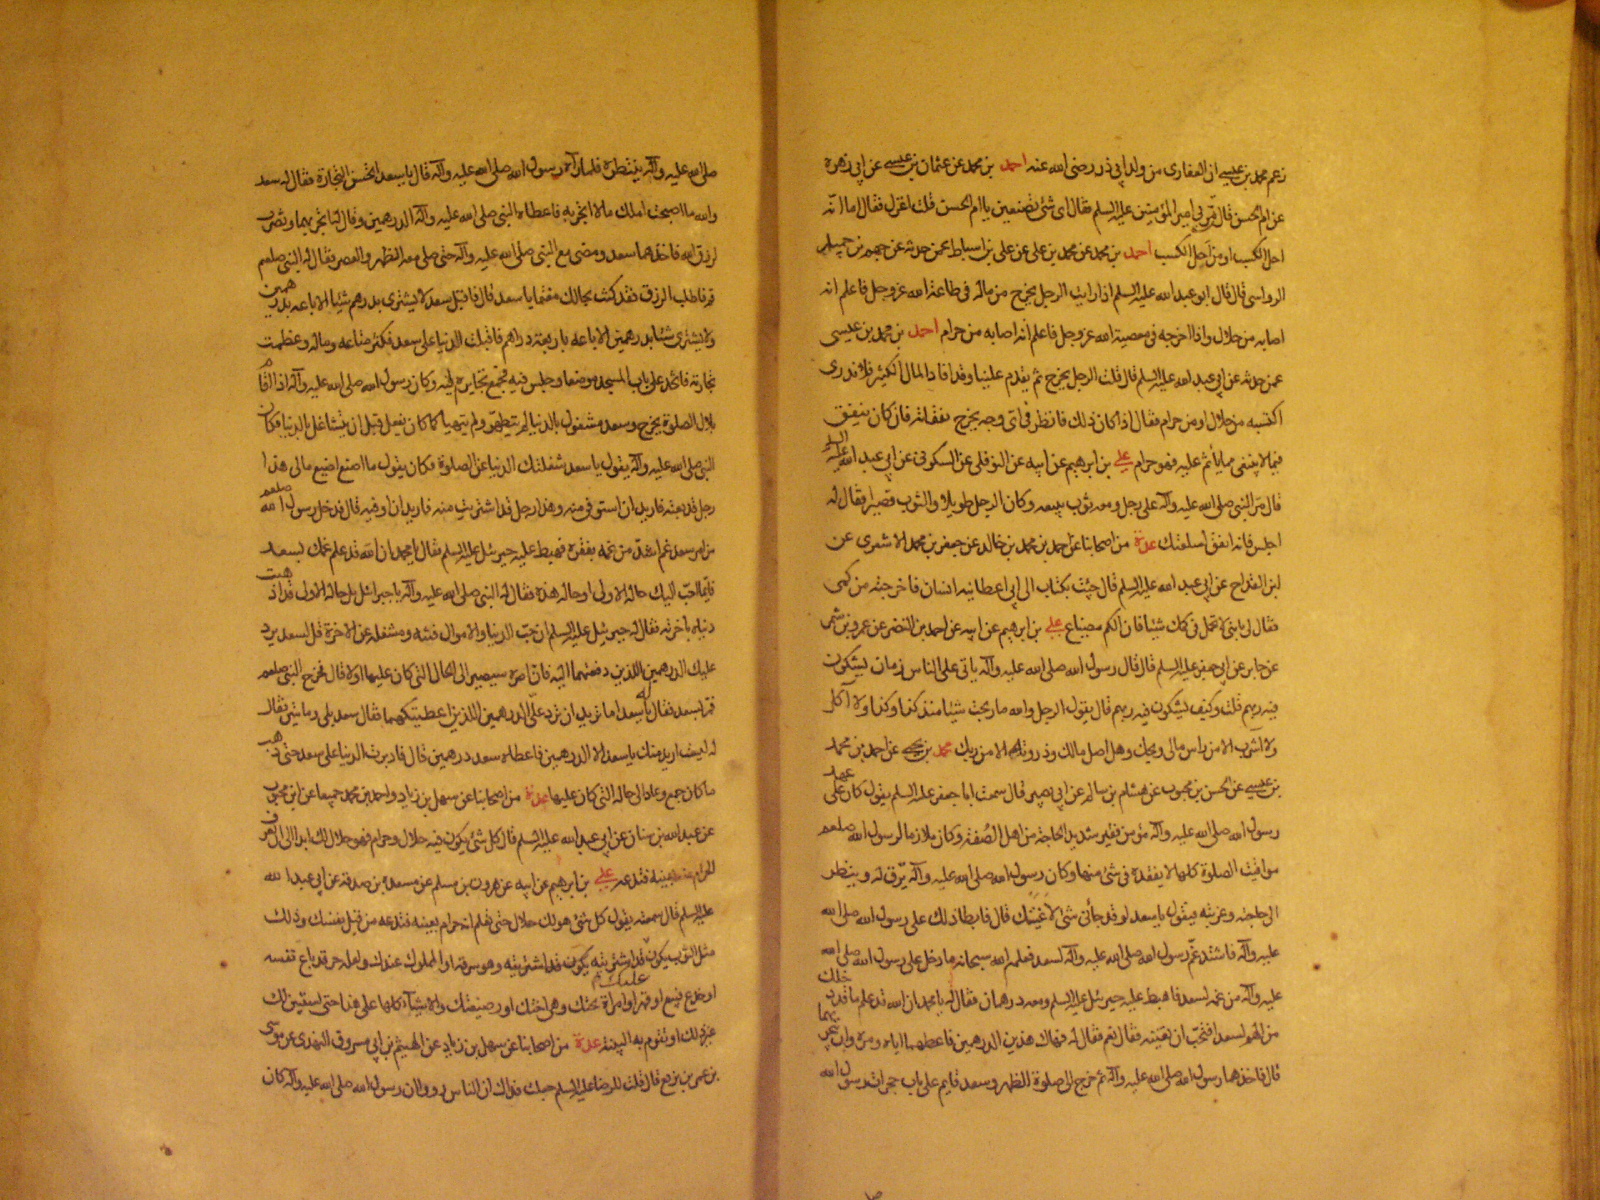 زعم محمد بن عيسى ان الغفارى من ولد ابى ذر رضى الله عنه احمد بن محمد عن عثمان بن عيسى عن ابى زهرة
عن ام الحسن قال مر بى امير المؤمنين عليه السلم فقال اى شئ تصنعين يا ام الحسن قلت اغزل فقال اما انه
احل الكسب او من احل الكسب احمد بن محمد عن محمد بن على عن على بن اسباط عمن حدثه عن جهم بن حميد
الرواسى قال قال ابو عبد الله عليه السلم اذا رايت الرجل يخرج من ماله فى طاعة الله عز وجل فاعلم انه
اصابه من حلال واذا اخرجه فى معصية الله عز وجل فاعلم انه اصابه من حرام احمد بن محمد بن عيسى
عمن حدثه عن ابى عبد الله عليه السلم قال قلت الرجل يخرج ثم يقدم علينا وقد افاد المال الكثير فلا ندرى
اكتسبه من حلال او من حرام فقال اذا كان ذلك فانظر فى اى وجه يخرج نفقاته فان كان ينفق
فيما لا ينبغى مما ياثم عليه فهو حرام على بن ابرهيم عن ابيه عن النوفلى عن السكونى عن ابى عبد الله عليه السلم
قال مر النبى صلى الله عليه وآله على رجل ومعه ثوب يبيعه وكان الرجل طويلا والثوب قصيرا فقال له
اجلس فانه انفق لسلعتك عدة من اصحابنا عن احمد بن محمد بن خالد عن جعفر بن محمد الاشعرى عن
ابن القداح عن ابى عبد الله عليه السلم قال جئت بكتاب الى ابى اعطانيه انسان فاخرجته من كمى
فقال لى يا بنى لا تحمل فى كمك شيئا فان الكم مضياع على بن ابرهيم عن ابيه عن احمد بن النضر عن عمرو بن شمر
عن جابر عن ابى جعفر عليه السلم قال قال رسول الله صلى الله عليه وآله ياتى على الناس زمان يشكون
فيه ربهم قلت وكيف يشكون فيه ربهم قال يقول الرجل والله ما ربحت شيئا منذ كذا وكذا ولا آكل
ولا اشرب الا من راس مالى ويحك وهل اصل مالك وذروته الا من ربك محمد بن يحيى عن احمد بن محمد
بن عيسى عن الحسن بن محبوب عن هشام بن سالم عن ابى بصير قال سمعت ابا جعفر عليه السلم يقول كان على عهد
رسول الله صلى الله عليه وآله مؤمن فقير شديد الحاجة من اهل الصُفة وكان ملازما لرسول الله صلعم
مواقيت الصلوة كلها لا يفقده فى شئ منها وكان رسول الله صلى الله عليه وآله يرق له وينظر
الى حاجته وغربته فيقول يا سعد لو قد جأنى شئ لاغنيتك قال فابطا ذلك على رسول الله صلى الله
عليه وآله فاشتد غم رسول الله صلى الله عليه وآله لسعد فعلم الله سبحانه ما دخل على رسول الله صلى الله
عليه وآله من غمه لسعد فاهبط عليه جبرئيل عليه السلم ومعه درهمان فقال له يا محمد ان الله قد علم ما قد دخلك
من الهم لسعد افتحب ان تغنيه فقال نعم فقال له فهاك هذين الدرهمين فاعطهما اياه ومره ان يتجر بهما
قال فاخذهما رسول الله صلى الله عليه وآله ثم خرج الى صلوة الظهر وسعد قايم على باب حجرات رسول الله
صلى الله عليه وآله ينتظره فلما رآه رسول الله صلى الله عليه وآله قال يا سعد اتحسن التجارة فقال له سعد
والله ما اصبحت املك مالا اتجر به فاعطاه النبى صلى الله عليه وآله الدرهمين وقال له اتجر بهما وتصرف
لرزق الله فاخذهما سعد ومضى مع النبى صلى الله عليه وآله حتى صلى معه الظهر والعصر فقال له النبى صلعم
قم فاطلب الرزق فقد كنت بحالك مغتما يا سعد قال فاقبل سعد لا يشترى بدرهم شيئا الا باعه بدرهمين
ولا يشترى شيئا بدرهمين الا باعه باربعة دراهم فاقبلت الدنيا على سعد فكثر متاعه وماله وعظمت
تجارته فاتخذ على باب المسجد موضعا وجلس فيه فجمع تجايره اليه وكان رسول الله صلى الله عليه وآله اذا اقام
بلال الصلوة يخرج وسعد مشغول بالدنيا لم يتطهر ولم يتهيا كما كان يفعل قبل ان يتشاغل بالدنيا فكان
النبى صلى الله عليه وآله يقول يا سعد شغلتك الدنيا عن الصلوة فكان يقول ما اصنع اضيع مالى هذا
رجل قد بعته فاريد ان استوفى منه وهذا رجل قد اشتريت منه فاريد ان اوفيه قال فدخل رسول الله صلعم
من امر سعد غم اشد من غمه بفقره فهبط عليه جبرئيل عليه السلم فقال يا محمد ان الله قد علم غمك بسعد
فايما احب اليك حاله الاولى او حاله هذه فقال له النبى صلى الله عليه وآله يا جبرائل بل حاله الاولى قد اذهبت
دنياه بآخرته فقال له جبرئيل عليه السلم ان حب الدنيا والاموال فتنة ومشغلة عن الاخرة قل لسعد يرد
عليك الدرهمين اللذين دفعتهما اليه فان امره سيصير الى الحال التى كان عليها اولا قال فخرج النبى صلعم
فمر بسعد فقال له يا سعد اما تريد ان ترد على الدرهمين اللذين اعطيتكهما فقال سعد بلى ومايتين فقال
له لست اريد منك يا سعد الا الدرهمين فاعطاه سعد درهمين قال فادبرت الدنيا على سعد حتى ذهب
ما كان جمع وعاد الى حاله التى كان عليها عدة من اصحابنا عن سهل بن زياد واحمد بن محمد جميعا عن ابن محبوب
عن عبد الله بن سنان عن ابى عبد الله عليه السلم قال كل شئ يكون فيه حلال وحرام فهو حلال لك ابدا الى ان تعرف
الحرام منه بعينه فتدعه على بن ابرهيم عن ابيه عن هرون بن مسلم عن مسعدة بن صدقة عن ابى عبد الله
عليه السلم قال سمعته يقول كل شئ هو لك حلال حتى تعلم انه حرام بعينه فتدعه من قبل نفسك وذلك
مثل الثوب يكون عليك قد اشتريته وهو سرقة او المملوك عندك ولعله حر قد باع نفسه
او خدع فبيع او قهر او امراة تحتك وهى اختك او رضيعتك والاشيآء كلها على هذا حتى يستبين لك
غير ذلك او تقوم به البينة عدة من اصحابنا عن سهل بن زياد عن الهيثم بن ابى مسروق النهدى عن موسى
بن عمر بن بزيع قال قلت للرضا عليه السلم جعلت فداك ان الناس رووا ان رسول الله صلى الله عليه وآله كان